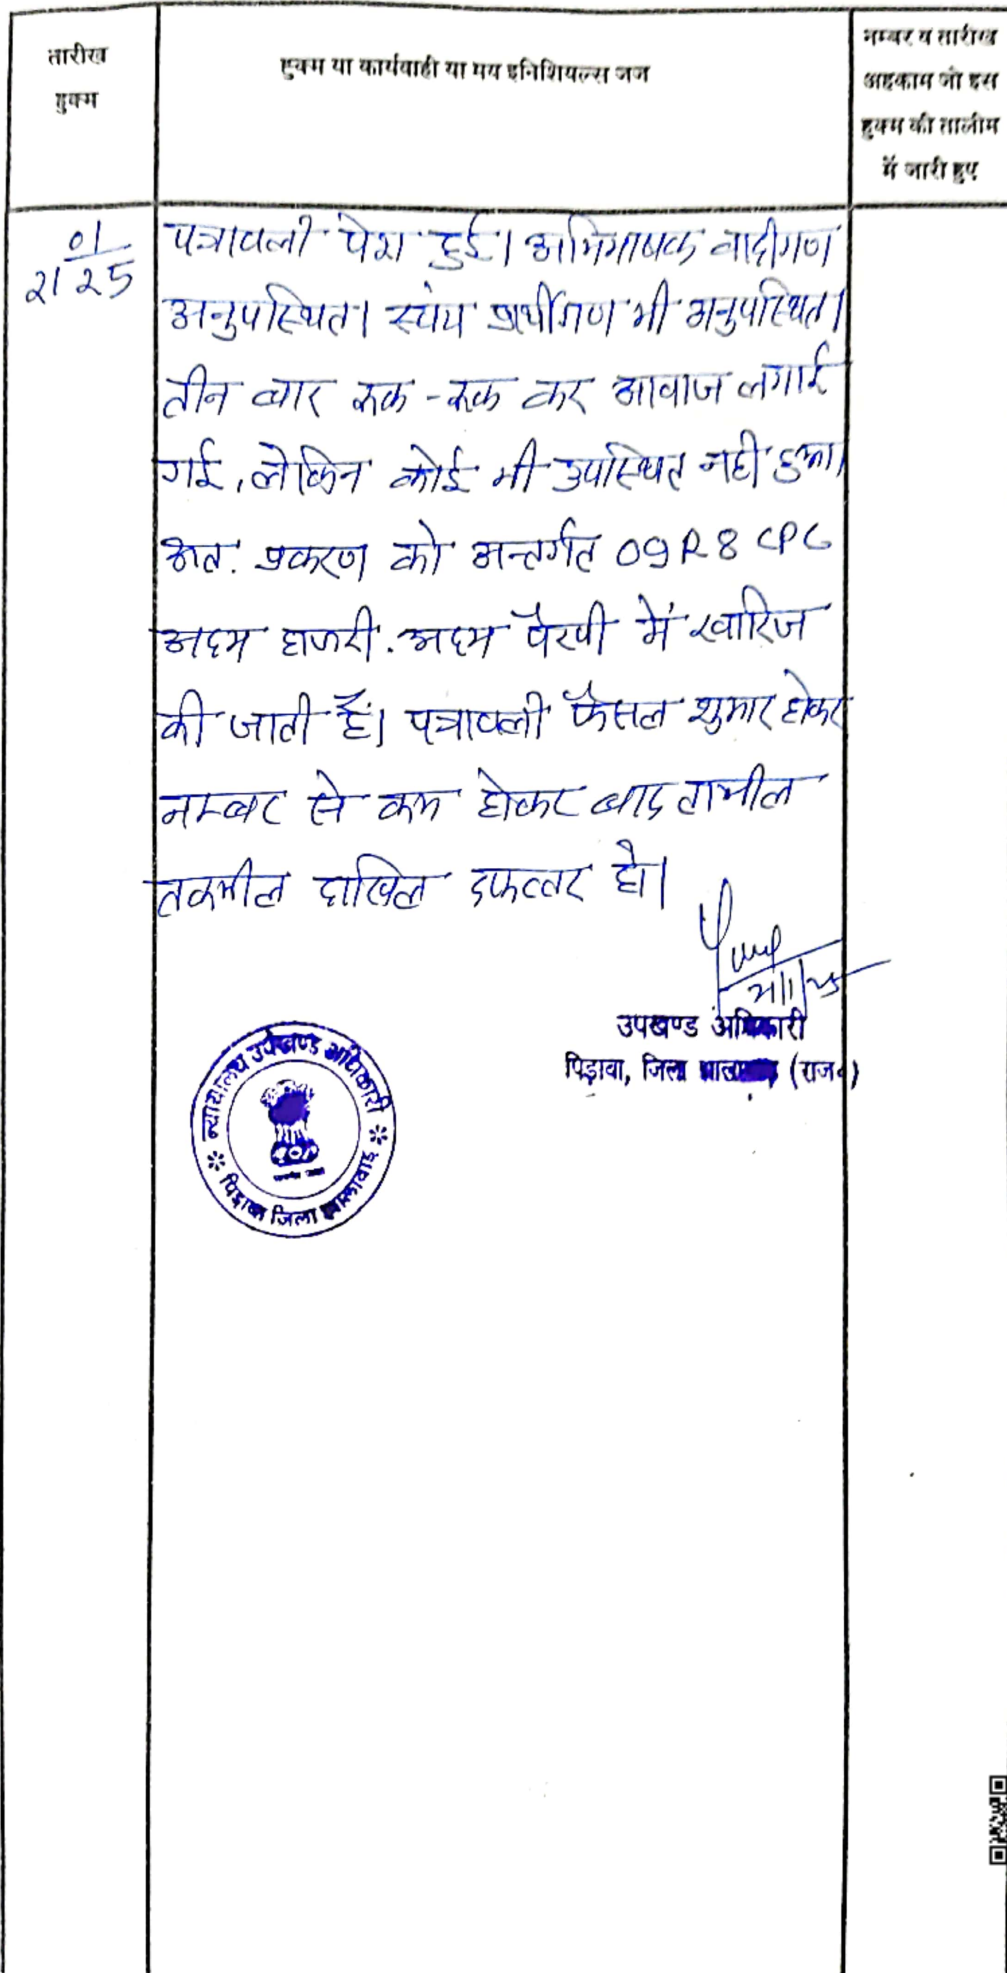 तारीख
हुक्म
हुक्म या कार्यवाही या मय इनिशियल्स जज
नम्बर व तारीख
अहकाम जो इस
हुक्म की तालीम
में जारी हुए
01
21 25
पत्रावली पेश हुई। अभिभाषक वादीगण
अनुपस्थित। स्वंय प्रार्थीगण भी अनुपस्थित।
तीन बार रूक-रूक कर आवाज लगाई
गई, लेकिन कोई भी उपस्थित नही हुआ।
अत. प्रकरण को अन्तर्गत 09 R 8 CPC
अदम हाजरी. अदम पैरवी में खारिज
की जाती हैं। पत्रावली फैसल शुमार होकर
नम्बर से कम होकर बाद तामील
तकमील दाखिल दफ्तर हो।
21/1/25
उपखण्ड अधिकारी
पिड़ावा, जिला (राज०)
न्यायालय उपखण्ड अधिकारी
पिड़ावा जिला झालावाड़